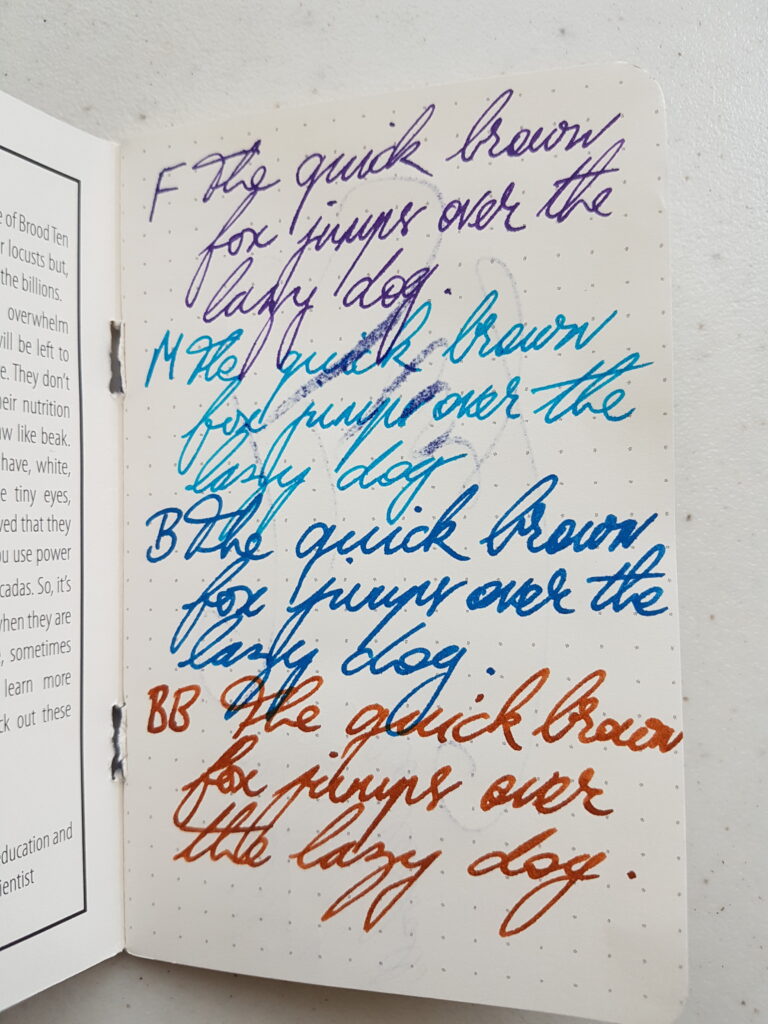 e of Brood Ten
r locusts but,
the billions.
overwhelm
will be left to
e. They don't
heir nutrition
aw like beak.
have, white,
e tiny eyes,
ved that they
ou use power
cadas. So, it's
when they are
, sometimes
learn more
ck out these
education and
ientist
F The quick brown
fox jumps over the
lazy dog.
M The quick brown
fox jumps over the
lazy dog
B The quick brown
fox jumps over the
lazy dog.
BB The quick brown
fox jumps over
the lazy dog.